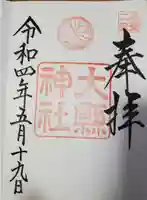 奉拝
大縣神社
令和四年五月十九日